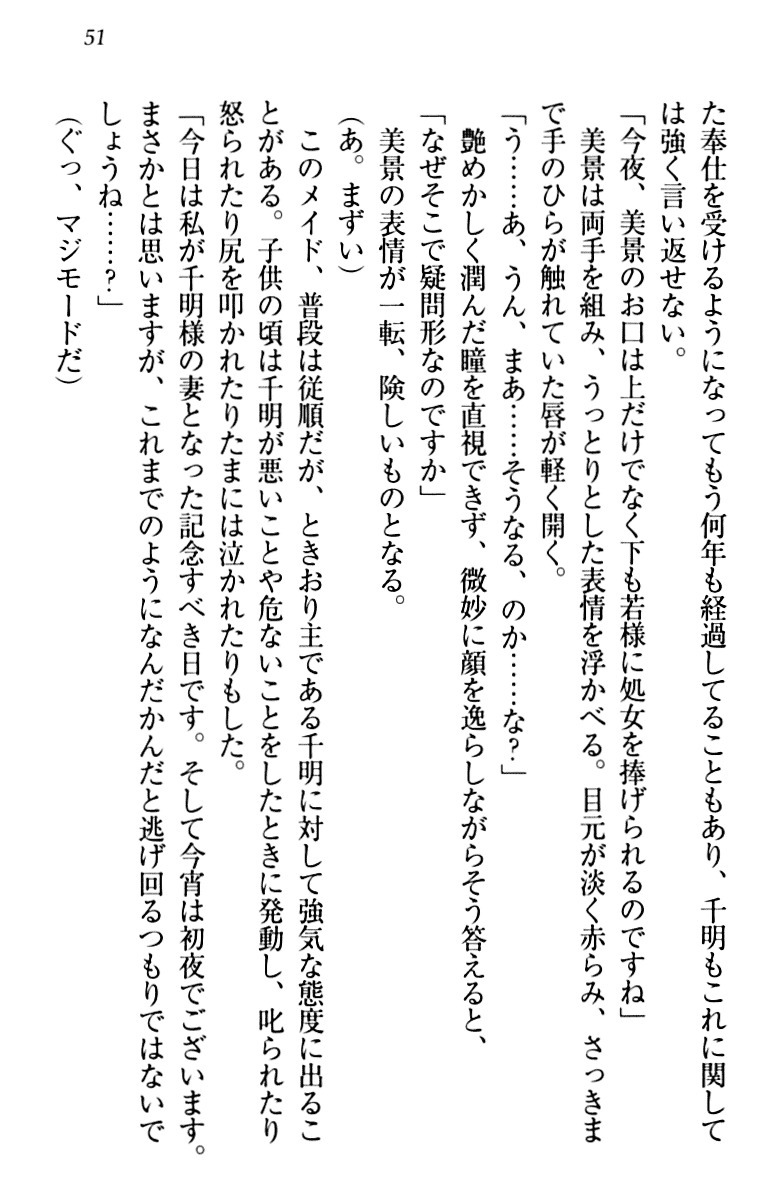 51
た奉仕を受けるようになってもう何年も経過してることもあり、千明もこれに関して
は強く言い返せない。
「今夜、美景のお口は上だけでなく下も若様に処女を捧げられるのですね」
美景は両手を組み、うっとりとした表情を浮かべる。目元が淡く赤らみ、さっきま
で手のひらが触れていた唇が軽く開く。
「う……あ、うん、まあ……そうなる、のか……な?」
艶めかしく潤んだ瞳を直視できず、微妙に顔を逸らしながらそう答えると、
「なぜそこで疑問形なのですか」
美景の表情が一転、険しいものとなる。
(あ。まずい)
このメイド、普段は従順だが、ときおり主である千明に対して強気な態度に出るこ
とがある。子供の頃は千明が悪いことや危ないことをしたときに発動し、叱られたり
怒られたり尻を叩かれたりたまには泣かれたりもした。
「今日は私が千明様の妻となった記念すべき日です。そして今宵は初夜でございます。
まさかとは思いますが、これまでのようになんだかんだと逃げ回るつもりではないで
しょうね……?」
(ぐっ、マジモードだ)